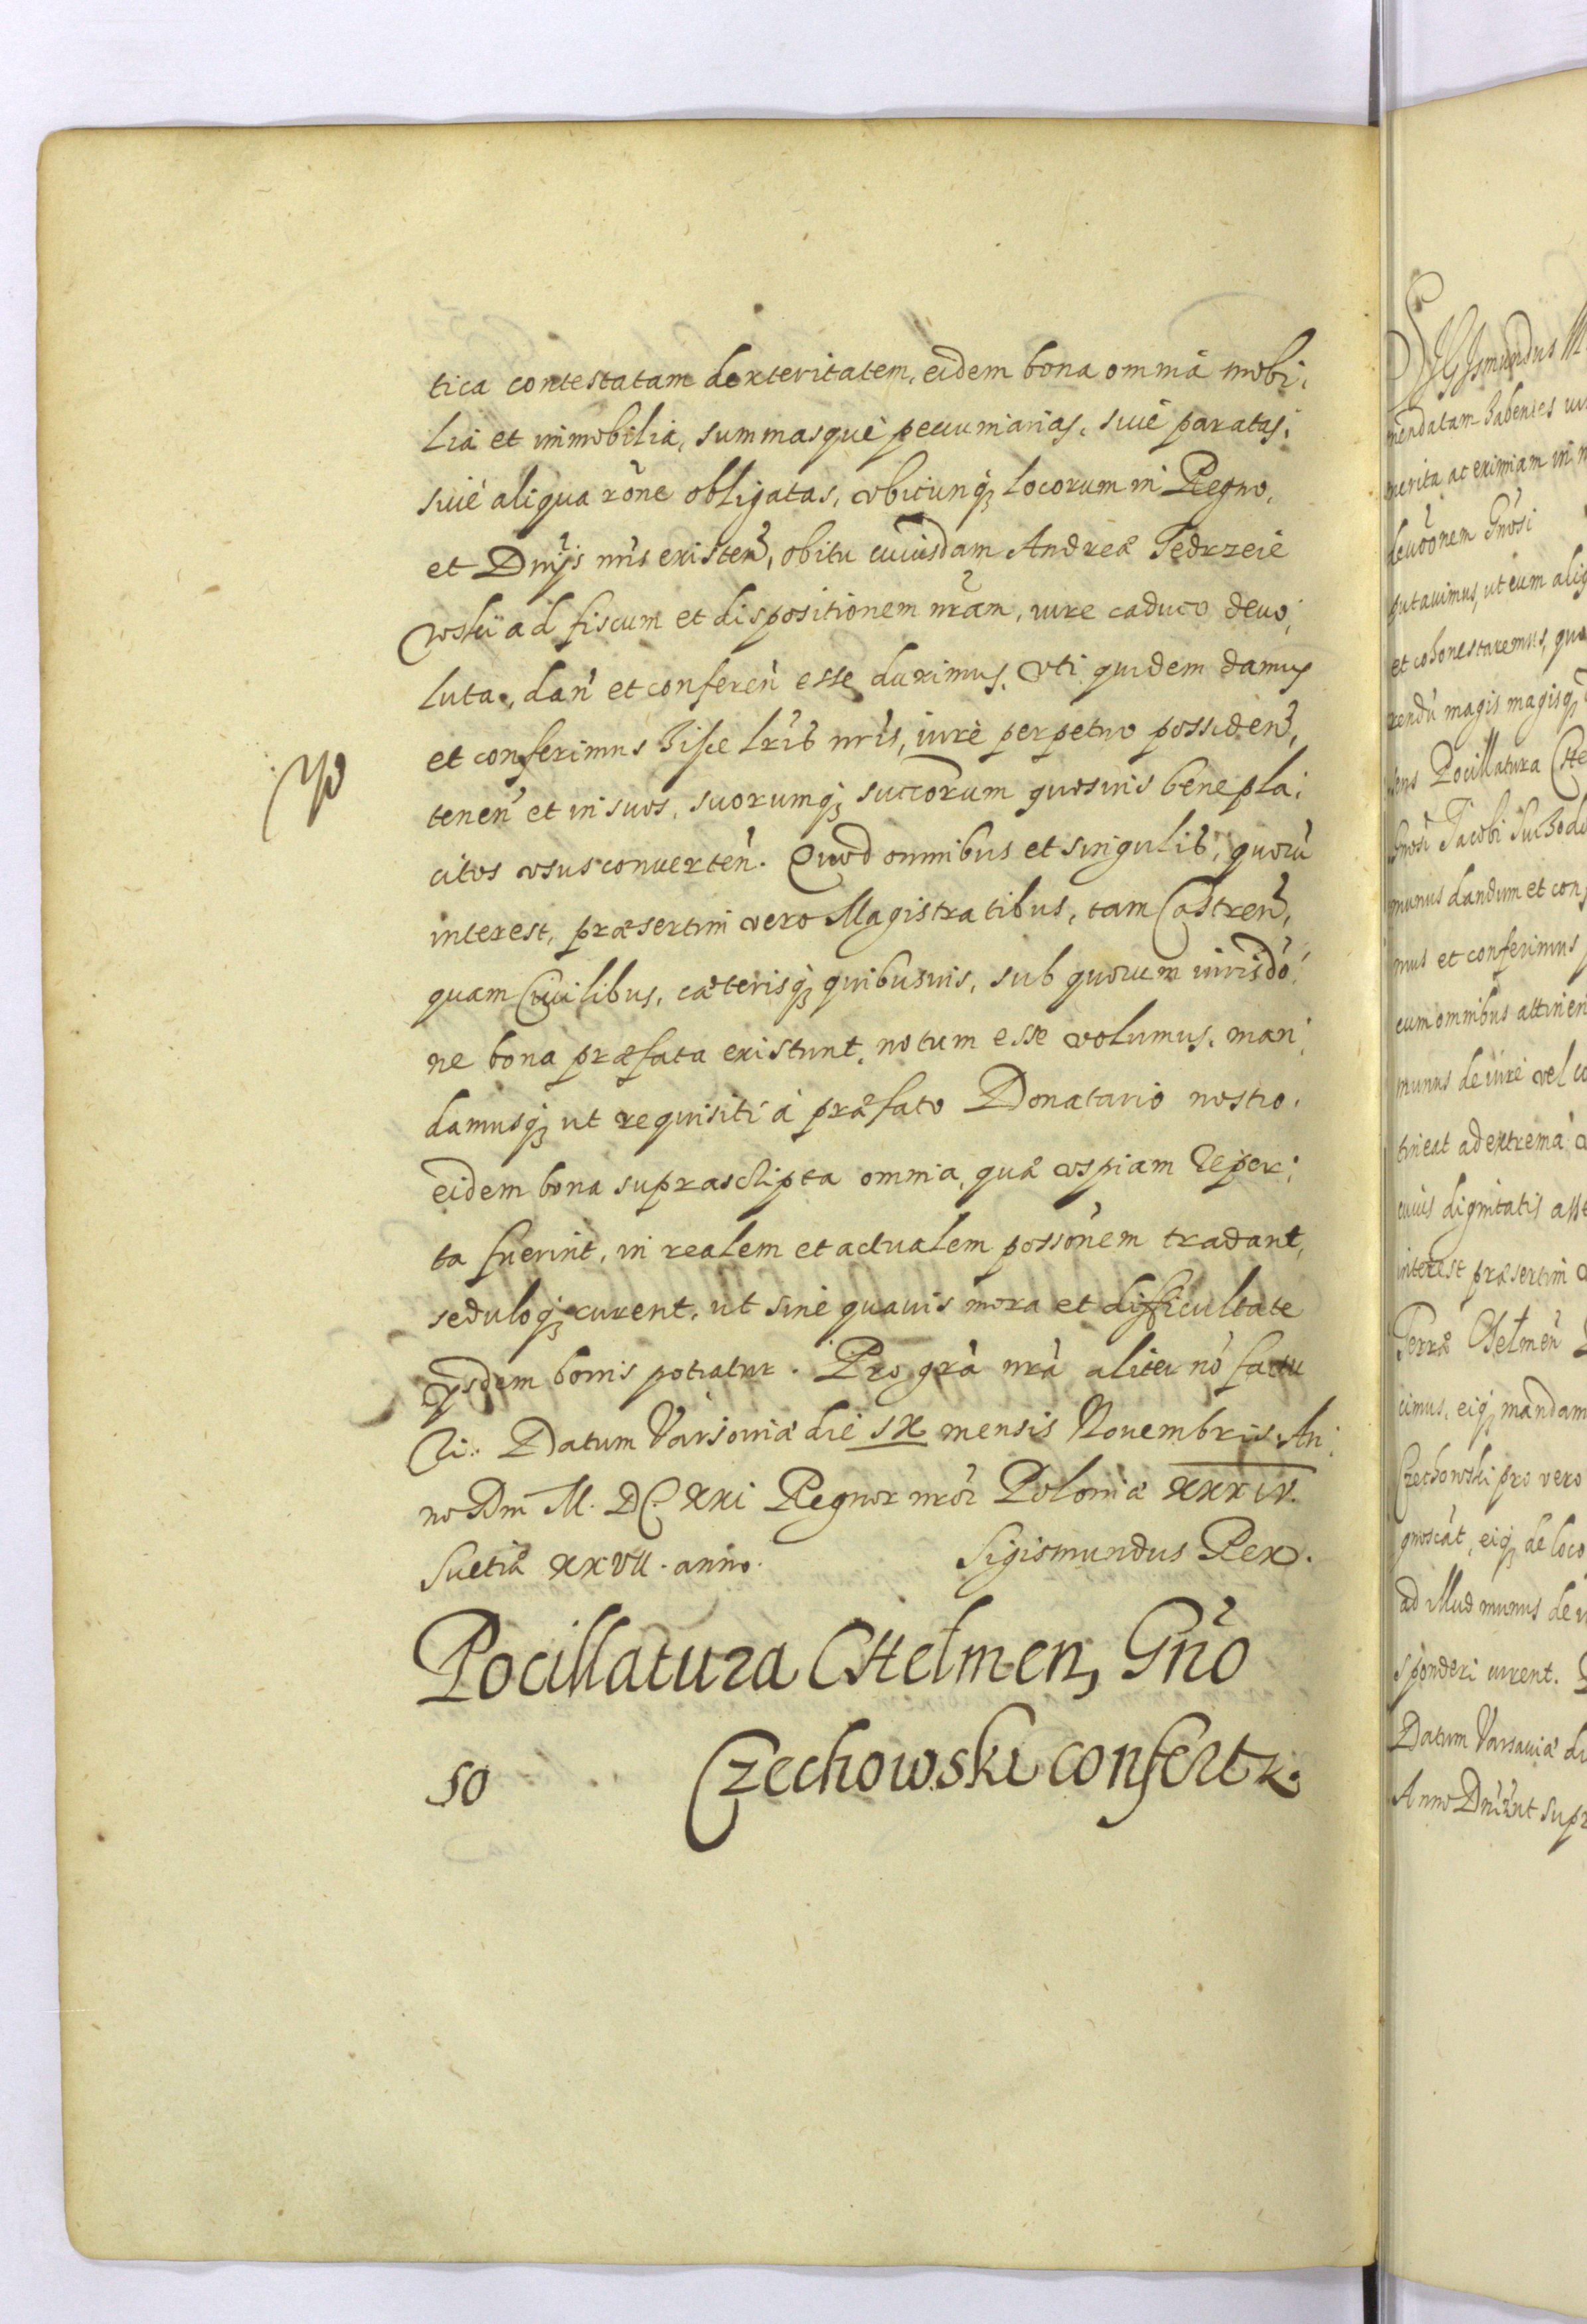 tica contestatam dexteritatem, eidem bona omnia mobi:
lia et immobilia, summasque pecuniarias, siue paratas,
siue aliqua rōne obligatas, vbicunq; locorum in Regno,
et Dnijs nris existen, obitu cuiusdam Andreæ Jedrzeie
wski ad fiscum et dispositionem nram, iure caduco deuo:
luta, dan et conferen esse duximus. Vti quidem damus
et conferimus hisce lrib nris, iure perpetuo possiden,
tenen et in suos, suorumq; succorum quosuis benepla:
citos vsus conuerten. Quod omnibus et singulib, quorū
interest, præsertim vero Magistratibus, tam Castren,
quam Ciuilibus, cæterisq; quibusuis, sub quorum iurisdō:
ne bona præfata existunt, notum esse volumus, man:
damusq; ut requisiti à præfato Donatario nostro,
eidem bona suprascripta omnia, quæ vspiam reper:
ta fuerint, in realem et actualem possōnem tradant,
seduloq; curent, ut sine quauis mora et difficultate
ijsdem bonis potiatur. Pro grā nrā aliter nō factu
ri. Datum Varsouiæ die IX mensis Nouembris. An:
no Dm M. DC. XXI Regnor nrōr Poloniæ XXXIV.
Suetiæ XXVII. anno. Sigismundus Rex.
Pocillatura CHelmen, Gnō
Czechowski confertr.
50
SIGIsmundus
mendatam habentes
merita ac eximiam in
deuōōnem Gnōsi
putauimus, ut eum
et cohonestaremus,
rendū magis magisq;
Pocillatura
Gnōsi Jacobi
munus dandum et
mus et conferimus
cum omnibus
munus de iure vel
tineat ad extremā
cuius dignitatis
interest præsertim
Terræ Chelmen
cimus, eiq; mandam
Czechowski pro vero
gnoscāt, eiq; de loco
ad illud munus de
sponderi curent.
Datum Varsauiæ
Anno Dnī ut